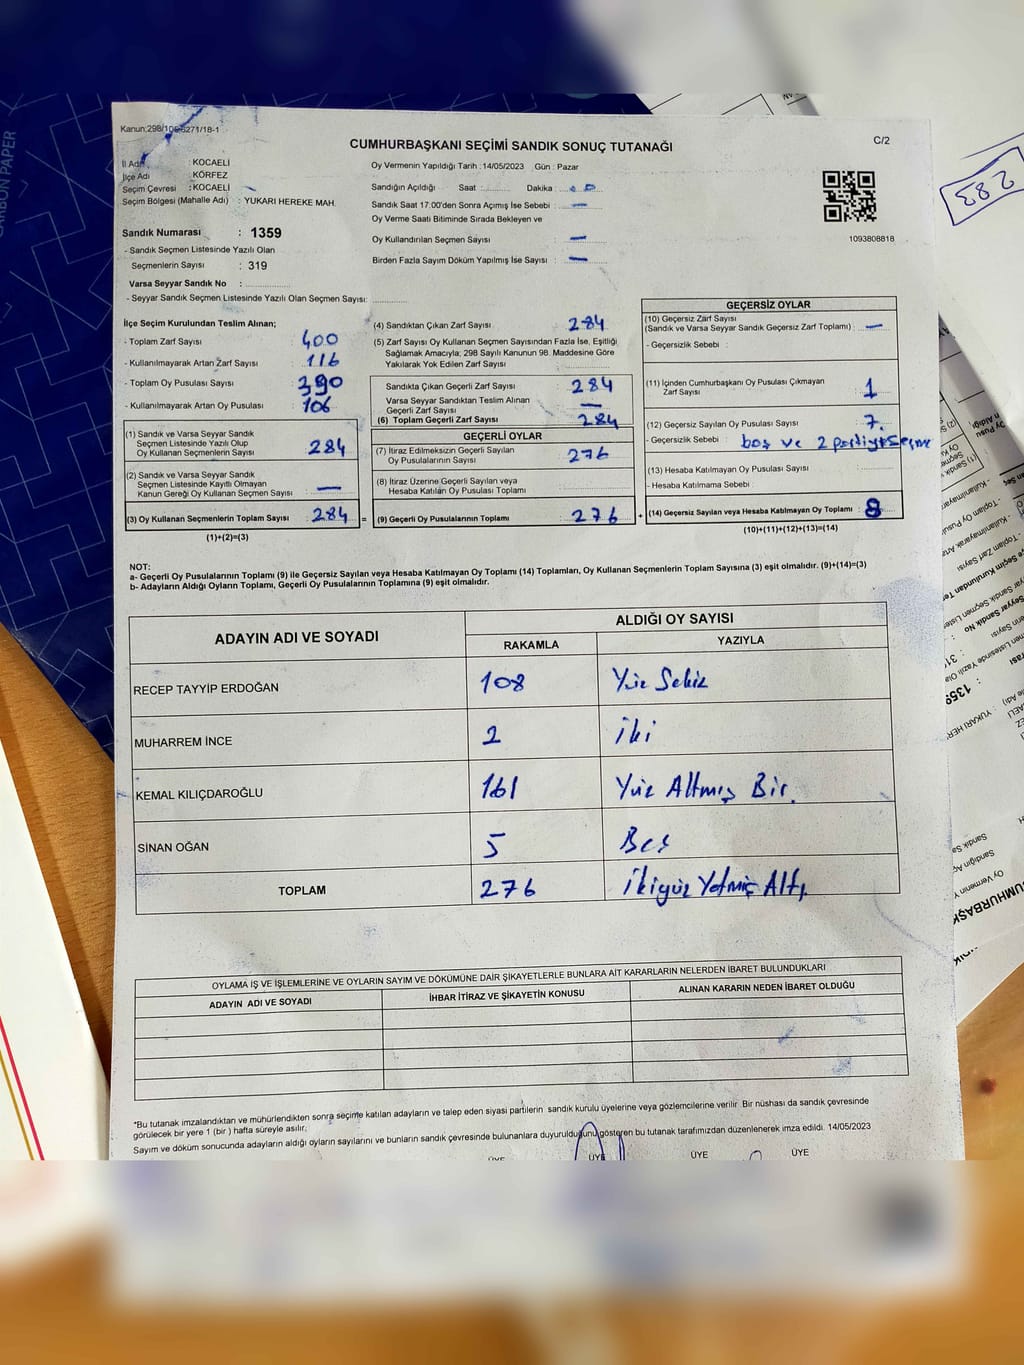 CARBON PAPER
283
Kanun:298/106-6271/18-1
CUMHURBAŞKANI SEÇİMİ SANDIK SONUÇ TUTANAĞI
C/2
İl Adı : KOCAELİ
İlçe Adı : KÖRFEZ
Seçim Çevresi : KOCAELİ
Seçim Bölgesi (Mahalle Adı) : YUKARI HEREKE MAH.
Sandık Numarası : 1359
- Sandık Seçmen Listesinde Yazılı Olan
Seçmenlerin Sayısı : 319
Varsa Seyyar Sandık No :
- Seyyar Sandık Seçmen Listesinde Yazılı Olan Seçmen Sayısı:
Oy Vermenin Yapıldığı Tarih : 14/05/2023 Gün : Pazar
Sandığın Açıldığı Saat : Dakika :
Sandık Saat 17:00'den Sonra Açımış İse Sebebi : —
Oy Verme Saati Bitiminde Sırada Bekleyen ve
Oy Kullandırılan Seçmen Sayısı : —
Birden Fazla Sayım Döküm Yapılmış İse Sayısı : —
1093808818
İlçe Seçim Kurulundan Teslim Alınan;
- Toplam Zarf Sayısı : 400
- Kullanılmayarak Artan Zarf Sayısı : 116
- Toplam Oy Pusulası Sayısı : 390
- Kullanılmayarak Artan Oy Pusulası : 106
(1) Sandık ve Varsa Seyyar Sandık
Seçmen Listesinde Yazılı Olup
Oy Kullanan Seçmenlerin Sayısı : 284
(2) Sandık ve Varsa Seyyar Sandık
Seçmen Listesinde Kayıtlı Olmayan
Kanun Gereği Oy Kullanan Seçmen Sayısı : —
(3) Oy Kullanan Seçmenlerin Toplam Sayısı : 284 =
(1)+(2)=(3)
(4) Sandıktan Çıkan Zarf Sayısı : 284
(5) Zarf Sayısı Oy Kullanan Seçmen Sayısından Fazla İse, Eşitliği
Sağlamak Amacıyla; 298 Sayılı Kanunun 98. Maddesine Göre
Yakılarak Yok Edilen Zarf Sayısı :
Sandıkta Çıkan Geçerli Zarf Sayısı : 284
Varsa Seyyar Sandıktan Teslim Alınan
Geçerli Zarf Sayısı : —
(6) Toplam Geçerli Zarf Sayısı : 284
GEÇERLİ OYLAR
(7) İtiraz Edilmeksizin Geçerli Sayılan
Oy Pusulalarının Sayısı : 276
(8) İtiraz Üzerine Geçerli Sayılan veya
Hesaba Katılan Oy Pusulaları Toplamı :
(9) Geçerli Oy Pusulalarının Toplamı : 276 +
GEÇERSİZ OYLAR
(10) Geçersiz Zarf Sayısı
(Sandık ve Varsa Seyyar Sandık Geçersiz Zarf Toplamı) : —
- Geçersizlik Sebebi :
(11) İçinden Cumhurbaşkanı Oy Pusulası Çıkmayan
Zarf Sayısı : 1
(12) Geçersiz Sayılan Oy Pusulası Sayısı : 7.
- Geçersizlik Sebebi : boş ve 2 partiye seçme
(13) Hesaba Katılmayan Oy Pusulası Sayısı :
- Hesaba Katılmama Sebebi :
(14) Geçersiz Sayılan veya Hesaba Katılmayan Oy Toplamı : 8
(10)+(11)+(12)+(13)=(14)
NOT:
a- Geçerli Oy Pusulalarının Toplamı (9) ile Geçersiz Sayılan veya Hesaba Katılmayan Oy Toplamı (14) Toplamları, Oy Kullanan Seçmenlerin Toplam Sayısına (3) eşit olmalıdır. (9)+(14)=(3)
b- Adayların Aldığı Oyların Toplamı, Geçerli Oy Pusulalarının Toplamına (9) eşit olmalıdır.
ADAYIN ADI VE SOYADI
ALDIĞI OY SAYISI
RAKAMLA YAZIYLA
RECEP TAYYİP ERDOĞAN 108 Yüz Sekiz
MUHARREM İNCE 2 İki
KEMAL KILIÇDAROĞLU 161 Yüz Altmış Bir
SİNAN OĞAN 5 Beş
TOPLAM 276 İkiyüz Yetmiş Altı
OYLAMA İŞ VE İŞLEMLERİNE VE OYLARIN SAYIM VE DÖKÜMÜNE DAİR ŞİKAYETLERLE BUNLARA AİT KARARLARIN NELERDEN İBARET BULUNDUKLARI
ADAYIN ADI VE SOYADI İHBAR İTİRAZ VE ŞİKAYETİN KONUSU ALINAN KARARIN NEDEN İBARET OLDUĞU
*Bu tutanak imzalandıktan ve mühürlendikten sonra seçime katılan adayların ve talep eden siyasi partilerin sandık kurulu üyelerine veya gözlemcilerine verilir. Bir nüshası da sandık çevresinde
görülecek bir yere 1 (bir ) hafta süreyle asılır.
Sayım ve döküm sonucunda adayların aldığı oyların sayılarını ve bunların sandık çevresinde bulunanlara duyurulduğunu gösteren bu tutanak tarafımızdan düzenlenerek imza edildi. 14/05/2023
ÜYE ÜYE ÜYE ÜYE